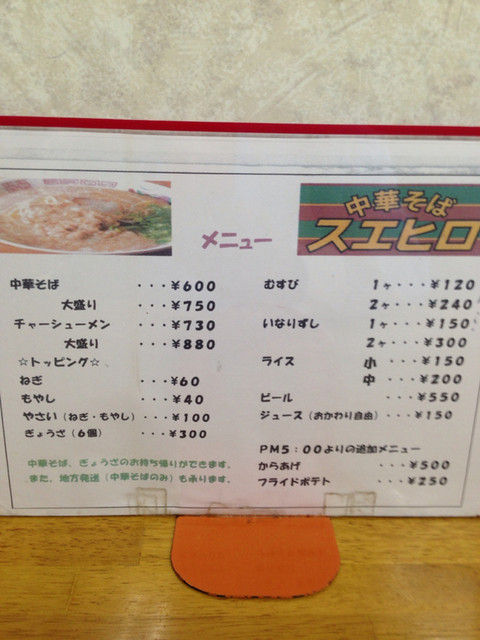 中華そば
スエヒロ
メニュー
中華そば ・・・¥600
大盛り ・・・¥750
チャーシューメン ・・・¥730
大盛り ・・・¥880
☆トッピング☆
ねぎ ・・・¥60
もやし ・・・¥40
やさい（ねぎ・もやし） ・・・¥100
ぎょうざ（6個） ・・・¥300
中華そば、ぎょうざのお持ち帰りができます。
また、地方発送（中華そばのみ）も承ります。
むすび 1ヶ・・・¥120
2ヶ・・・¥240
いなりずし 1ヶ・・・¥150
2ヶ・・・¥300
ライス 小 ・・・¥150
中 ・・・¥200
ビール ・・・¥550
ジュース（おかわり自由） ・・・¥150
PM5：00よりの追加メニュー
からあげ ・・・¥500
フライドポテト ・・・¥250